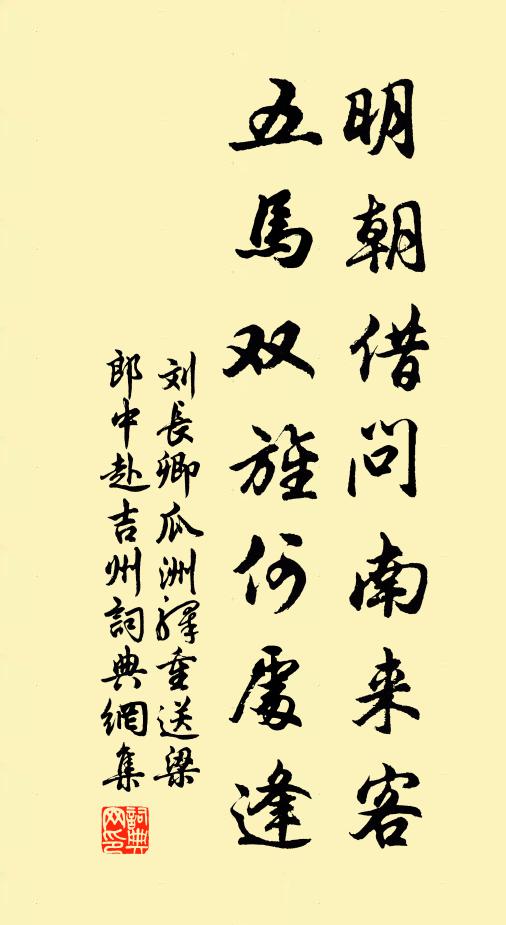 明朝借问南来客
五馬双旌何處逢
刘長卿瓜洲驛重送梁
郎中赴吉州詞典網集
詞典
网印